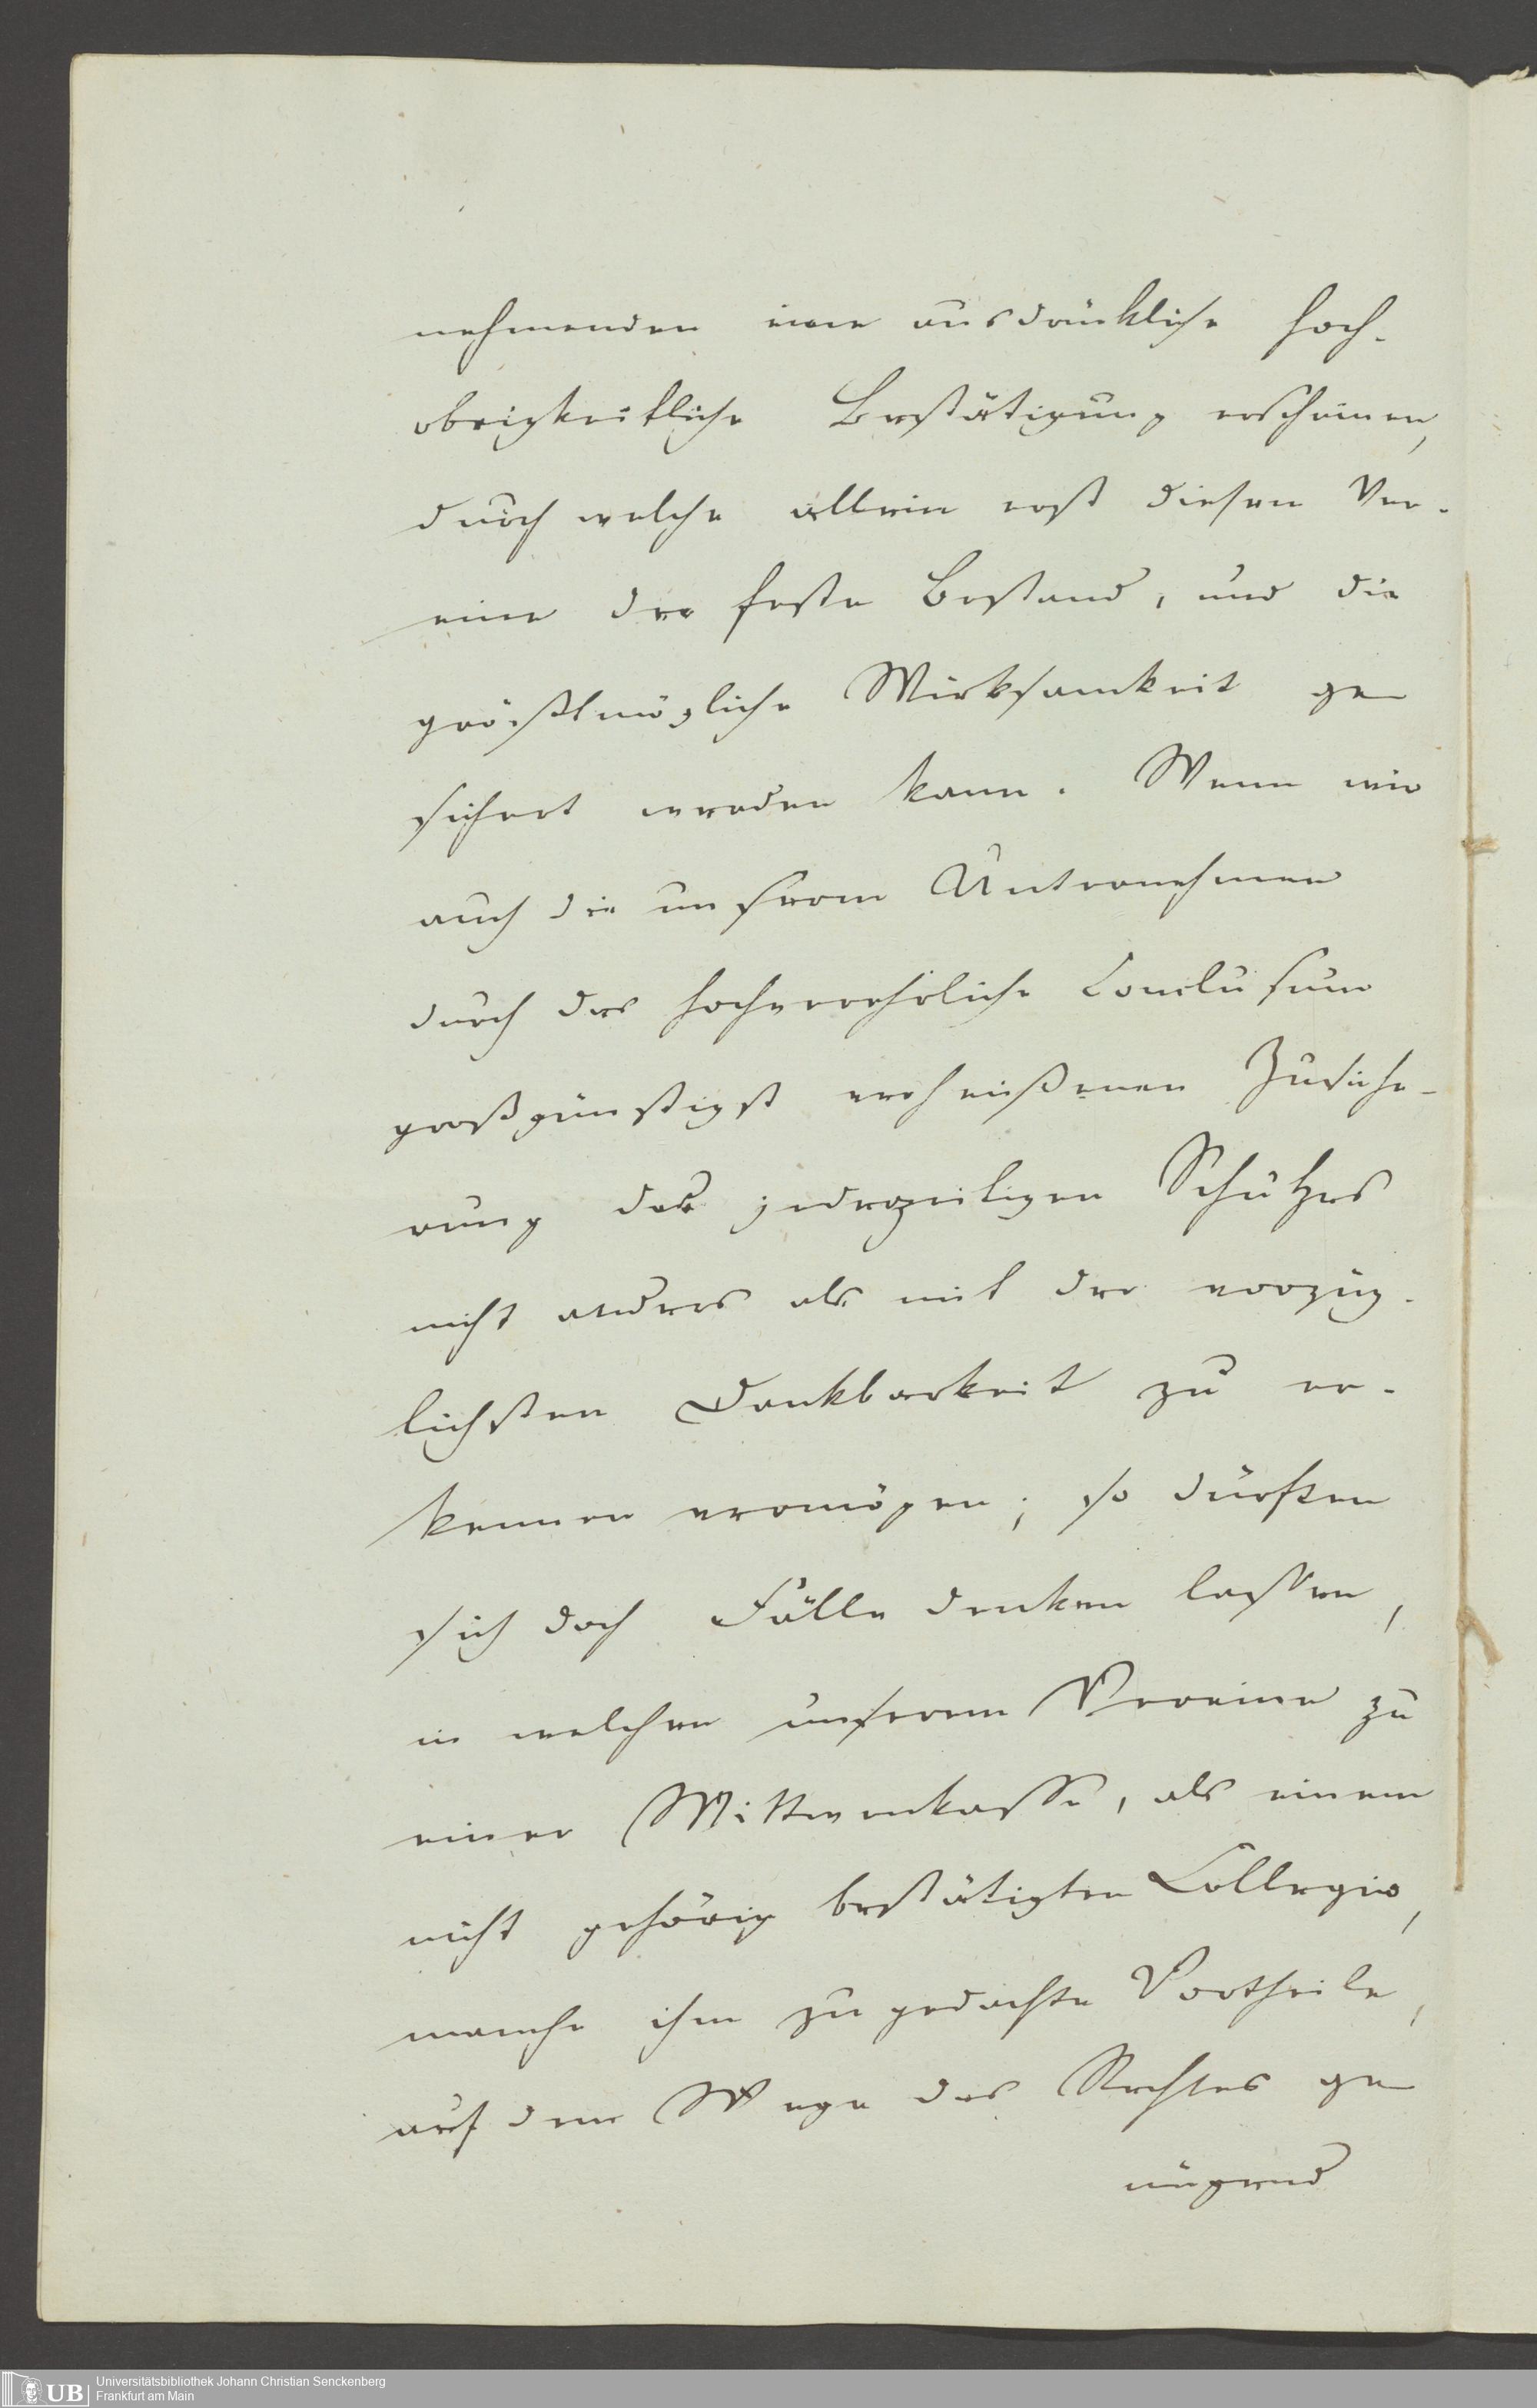 nehmenden eine ausdrückliche hoch-
obrigkeitliche Bestätigung erscheinen,
durch welche allein erst diesem Ver-
eine der feste Bestand, und die
größtmögliche Wirksamkeit ge
sichert werden kann. Wenn wir
auch die unserm Unternehmen
durch das hochverehrliche Conclusum
großgünstigst verheißenen Zusiche-
rung des jederzeitigen Schutzes
nicht anders als mit der vorzüg-
lichsten Dankbarkeit zu er-
kennen vermögen; so dürften
sich doch Fälle denken lassen,
in welchen unserem Vereine zu
einer Wittwenkasse, als einem
nicht gehörig bestätigten Collegio,
manche ihm zugedachte Vortheile,
auf dem Wege des Rechtes ge
nügend
UB
Universitätsbibliothek Johann Christian Senckenberg
Frankfurt am Main